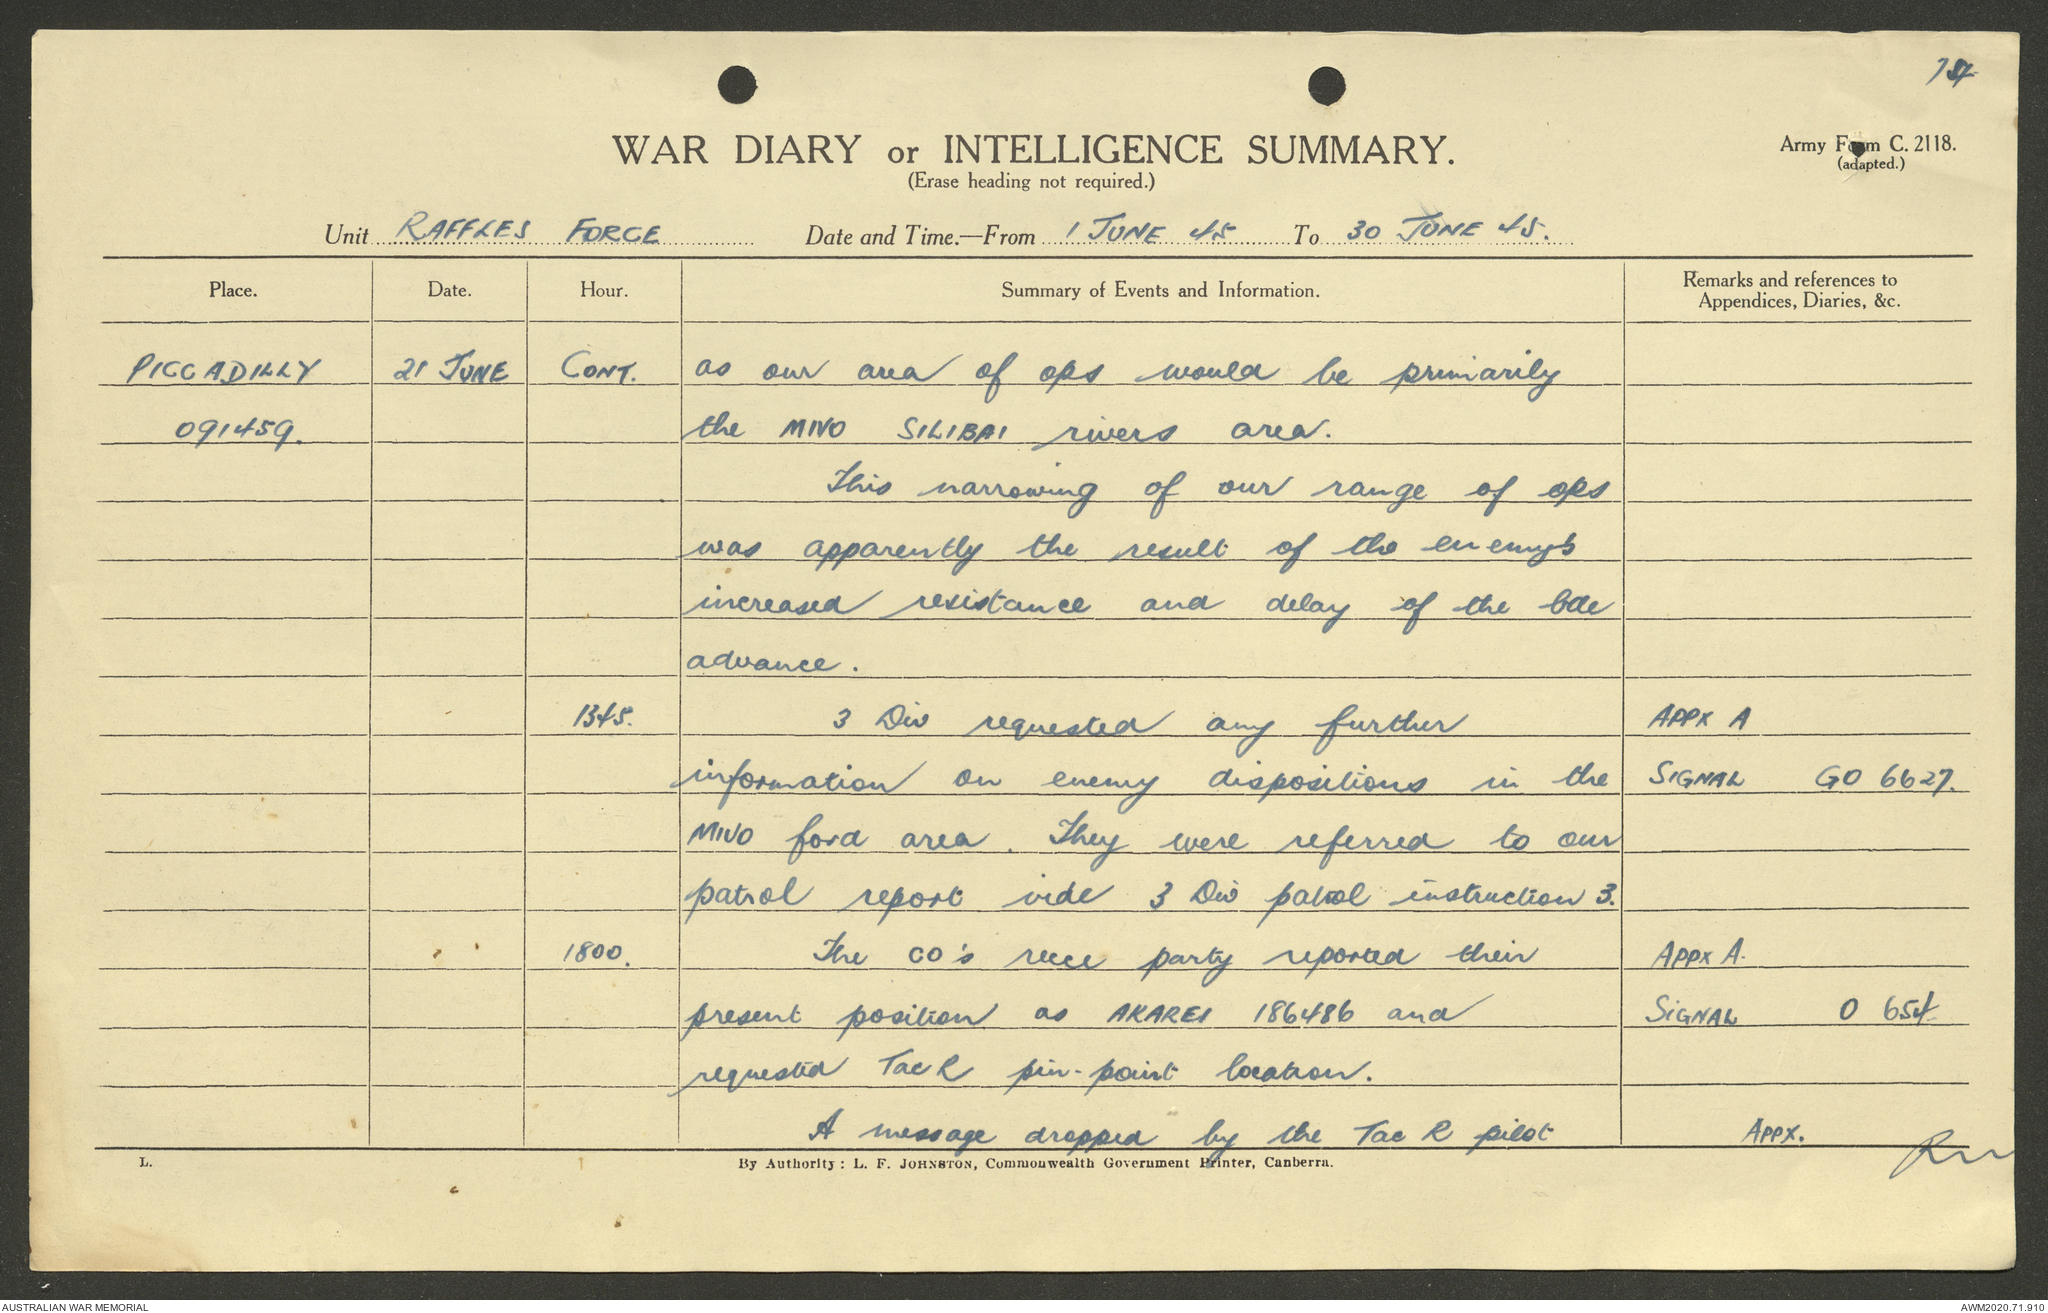 WAR DIARY or INTELLIGENCE SUMMARY.
(Erase heading not required.)
Army Form C. 2118.
(adapted.)
Unit RAFFLES FORCE Date and Time.—From 1 JUNE 45 To 30 JUNE 45.
Place. Date. Hour. Summary of Events and Information. Remarks and references to
Appendices, Diaries, &c.
PICCADILLY 21 JUNE CONT. as our area of ops would be primarily
091459. the MIVO SILIBAI rivers area.
This narrowing of our range of ops
was apparently the result of the enemy's
increased resistance and delay of the bde
advance.
1345. 3 Div requested any further APPX A
information on enemy dispositions in the SIGNAL GO 6627.
MIVO ford area. They were referred to our
patrol report vide 3 Div patrol instruction 3.
1800. The CO's recce party reported their APPX A.
present position as AKAREI 186486 and SIGNAL O 654
requested Tac R pin-point location.
A message dropped by the Tac R pilot APPX.
L. By Authority: L. F. JOHNSTON, Commonwealth Government Printer, Canberra.
AUSTRALIAN WAR MEMORIAL AWM2020.71.910